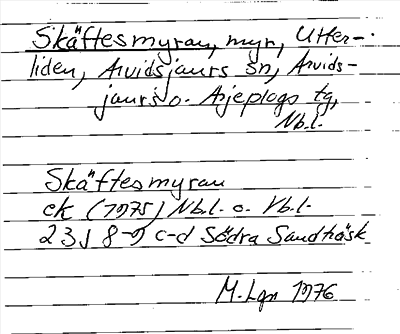 Skäftesmyran, myr, Utter-
liden, Arvidsjaurs sn, Arvids-
jaurs o. Arjeplogs tg,
Nb.l.
Skäftesmyran
ek (1975) Nb.l. o. Vb.l.
23J 8-9 c-d Södra Sandträsk
M. Lgn 1976